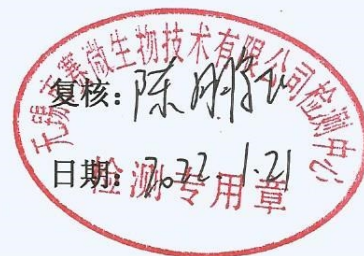 无锡市赛微生物技术有限公司检测中心
复核：陈
日期：2022.1.21
检测专用章